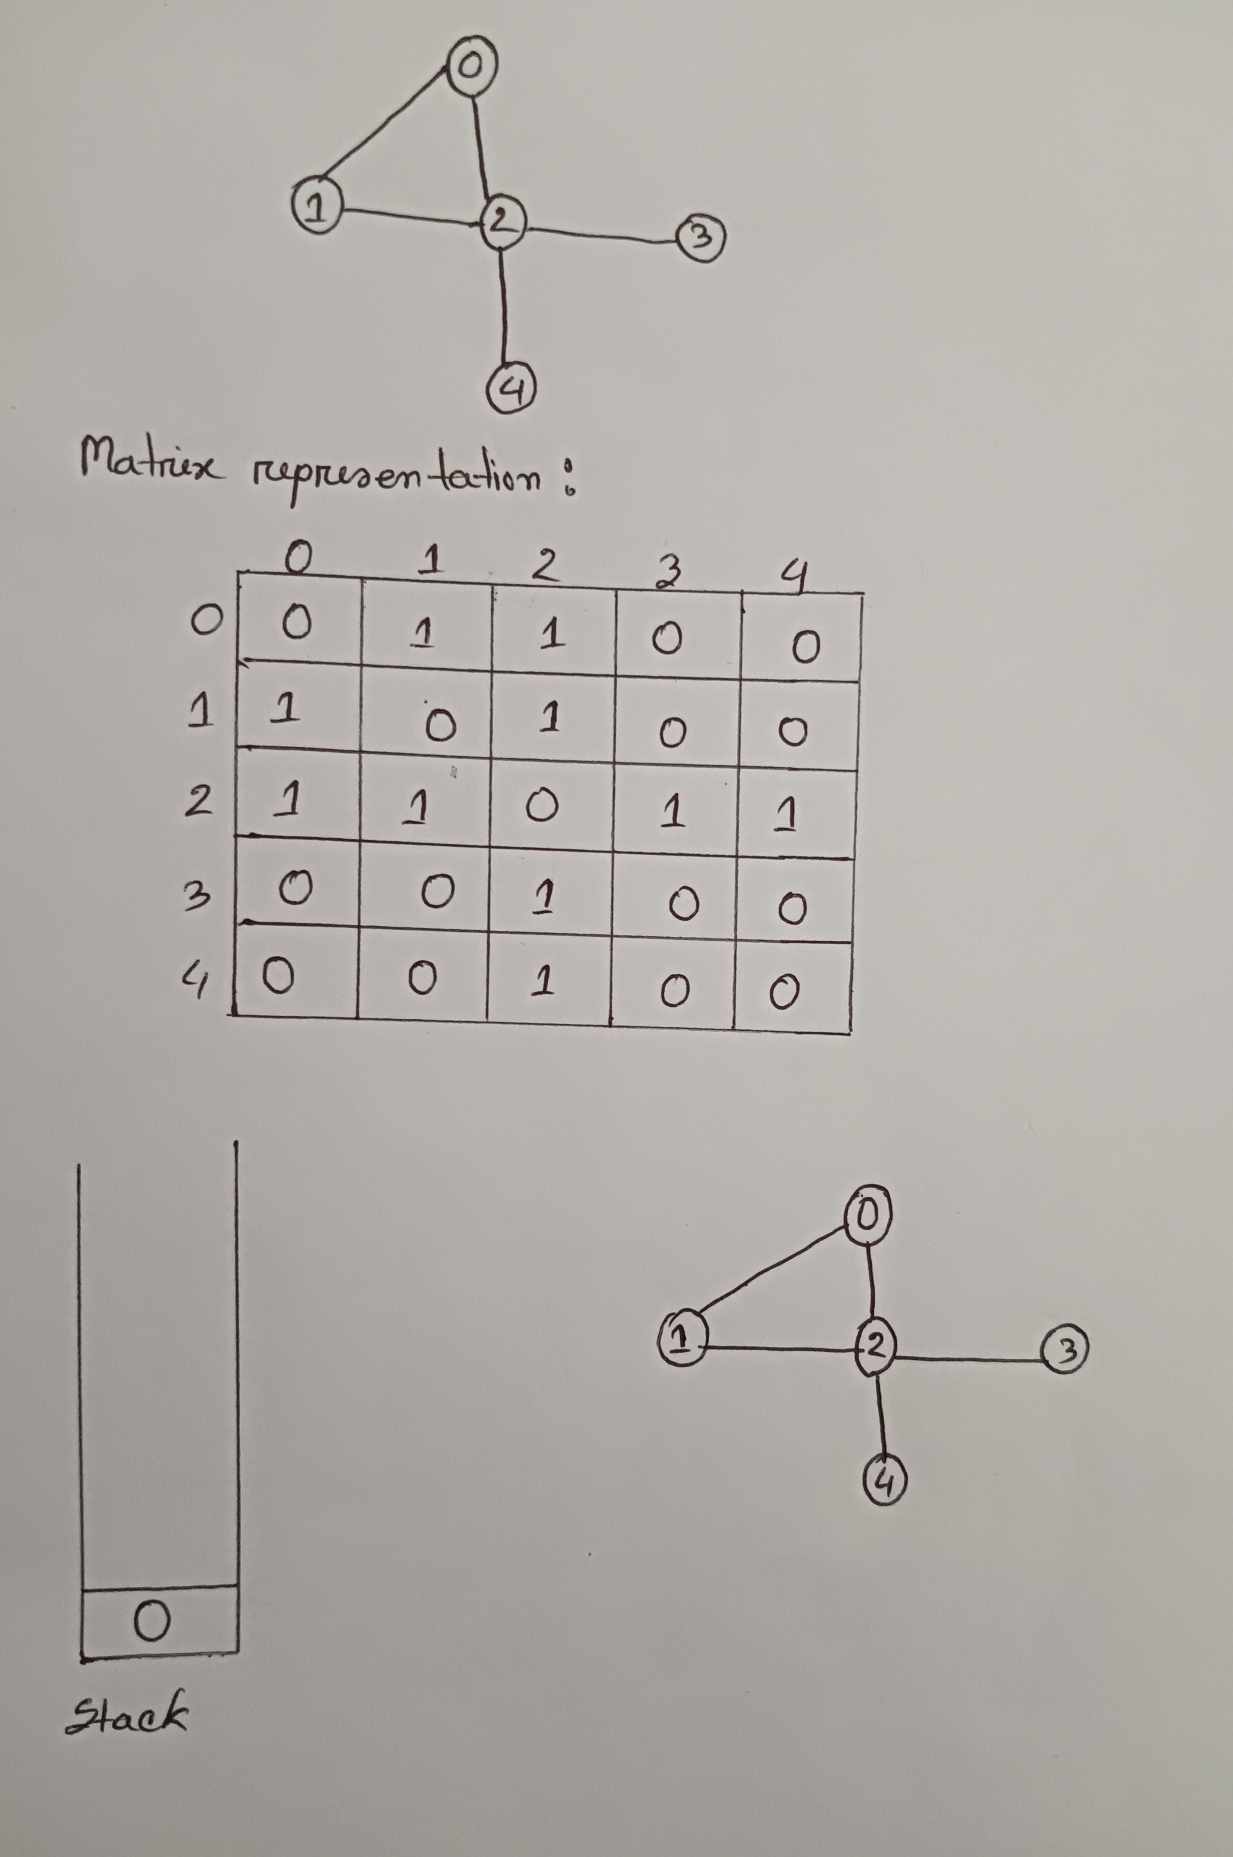 0
1 2 3
4
Matrix representation :
0 1 2 3 4
0 0 1 1 0 0
1 1 0 1 0 0
2 1 1 0 1 1
3 0 0 1 0 0
4 0 0 1 0 0
0
1 2 3
4
0
Stack